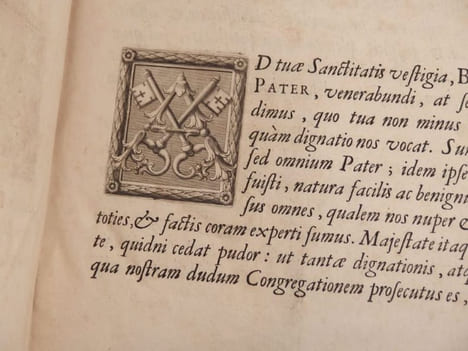 AD tuæ Sanctitatis vestigia, B
PATER, venerabundi, at se
dimus, quo tua non minus
quàm dignatio nos vocat. Sun
sed omnium Pater; idem ipse
fuisti, natura facilis ac benign
sus omnes, qualem nos nuper &
toties, & factis coram experti sumus. Majestate itaq
te, quidni cedat pudor: ut tantæ dignationis, atq
qua nostram dudum Congregationem prosecutus es,